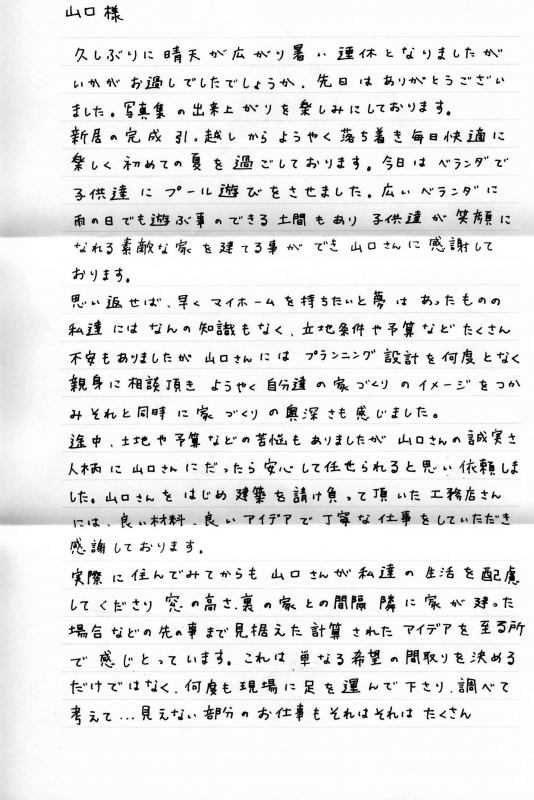 山口 様
久しぶりに晴天が広がり暑い連休となりましたが
いかがお過しでしたでしょうか。先日はありがとうござい
ました。写真集の出来上がりを楽しみにしております。
新居の完成 引っ越しからようやく落ち着き毎日快適に
楽しく初めての夏を過ごしております。今日はベランダで
子供達にプール遊びをさせました。広いベランダに
雨の日でも遊ぶ事のできる土間もあり 子供達が笑顔に
なれる素敵な家を建てる事ができ山口さんに感謝して
おります。
思い返せば、早くマイホームを持ちたいと夢はあったものの
私達にはなんの知識もなく、立地条件や予算などたくさん
不安もありましたが山口さんにはプランニング設計を何度となく
親身に相談頂き ようやく自分達の家づくりのイメージをつか
みそれと同時に家づくりの奥深さも感じました。
途中、土地や予算などの苦悩もありましたが山口さんの誠実さ
人柄に山口さんにだったら安心して任せられると思い依頼しま
した。山口さんをはじめ建築を請け負って頂いた工務店さん
には、良い材料、良いアイデアで丁寧な仕事をしていただき
感謝しております。
実際に住んでみてからも山口さんが私達の生活を配慮
してくださり 窓の高さ、裏の家との間隔 隣に家が建った
場合などの先の事まで見据えた計算されたアイデアを至る所
で感じとっています。これは、単なる希望の間取りを決める
だけではなく、何度も現場に足を運んで下さり、調べて
考えて…見えない部分のお仕事もそれはそれはたくさん